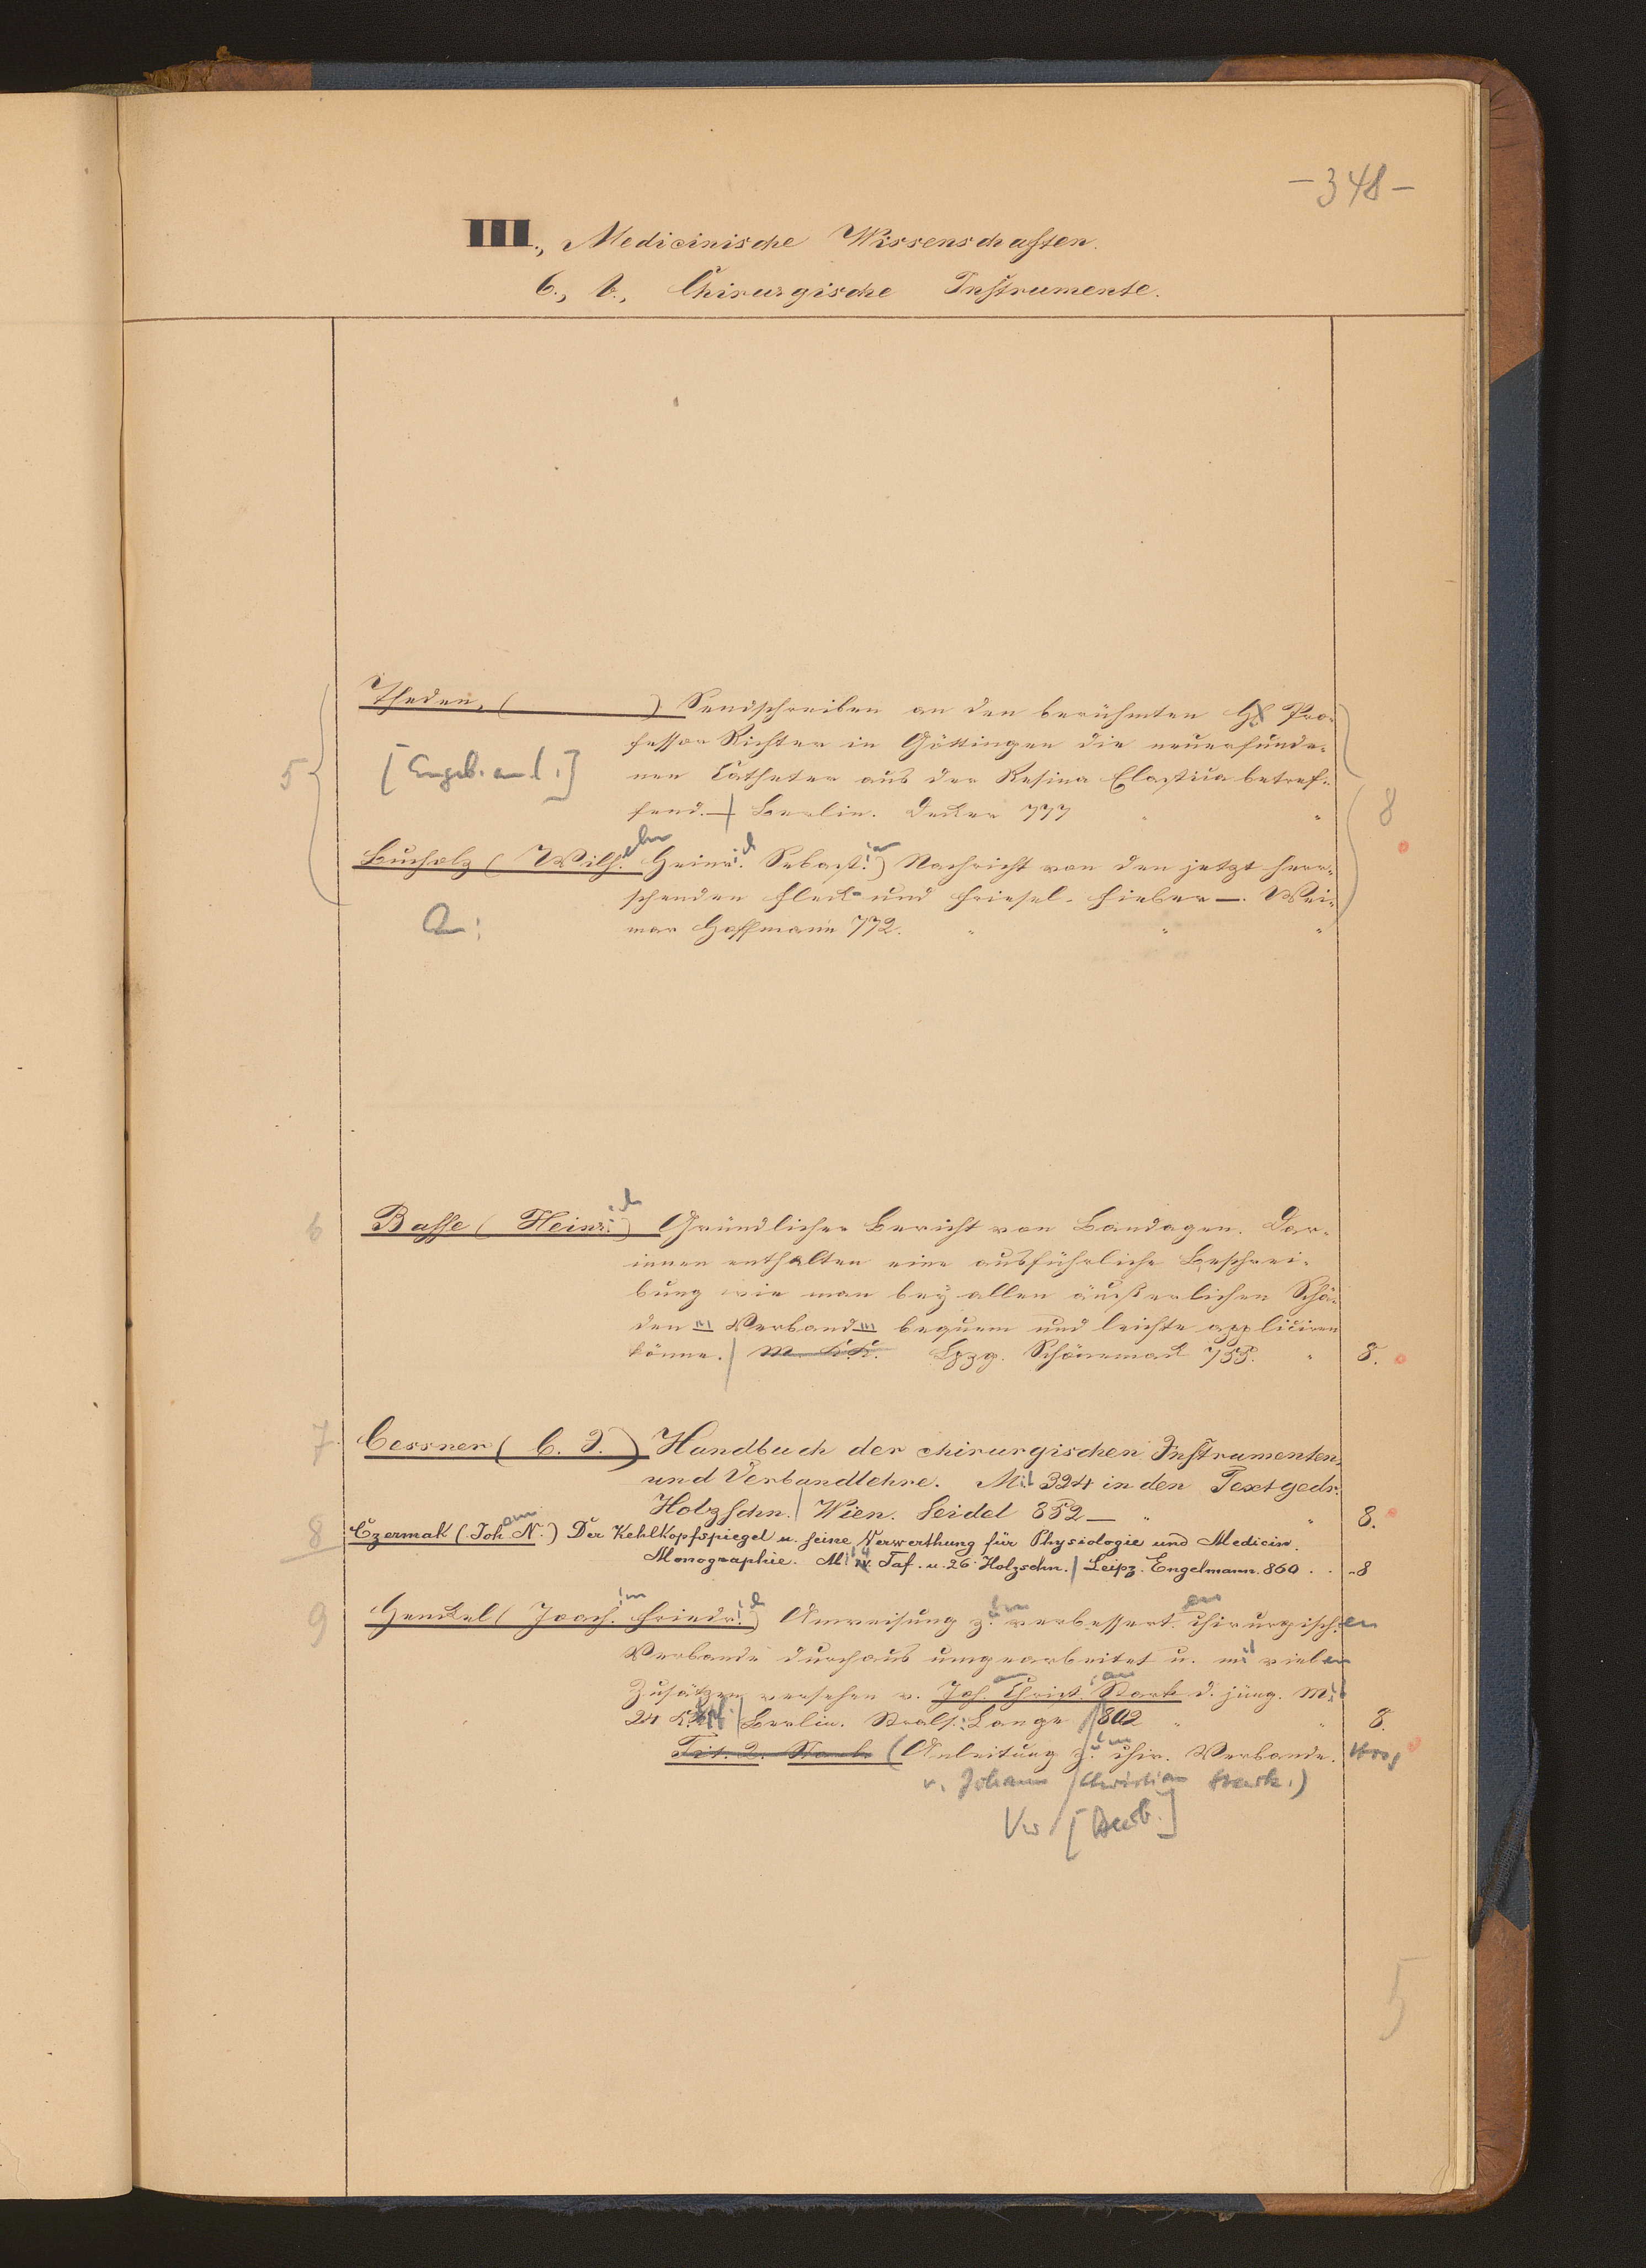 – 348 –
III., Medicinische Wissenschaften.
6., b., Chirurgische Instrumente.
Theden, ( ) Sendschreiben an den berühmten H. Pro-
5 fessor Richter in Göttingen die neuerfunde-
[Angeb. an 1.] nen Catheter aus der Resina Elastica betref-
fend. — | Berlin. Decker 777 " " 8
Bucholz (Wilhelm Heinrich Sebastian) Nachricht von den jetzt herr-
schenden Fleck- und Friesel-Fieber —. Wei-
An: mar Hoffmann 772. " " "
6 Basse (Heinrich) Gründlicher Bericht von Bandagen. Dar-
innen enthalten eine ausführliche Beschrei-
bung wie man bey allen äußerlichen Schä-
den Verband bequem und leichte appliciren
könne. | m. K.K. Lpzg. Schönermarck 755. " 8.
7. Cessner (C. J.) Handbuch der chirurgischen Instrumenten-
und Verbandlehre. Mit 324 in den Text gedr.
Holzschn. | Wien. Seidel 852 — " " 8.
8 Czermak (Johann N.) Der Kehlkopfspiegel u. seine Verwerthung für Physiologie und Medicin.
Monographie. Mit 4 Taf. u. 26 Holzschn. | Leipz. Engelmann. 860 . . -8
9 Henckel (Joachim Friedrich) Anweisung zum verbesserten chirurgischen
Verbande durchaus umgearbeitet u. mit vielen
Zusätzen versehen v. Johann Christian Stark d. jüng. Mit
24 Kpf. | Berlin. Strals: Lange 1802 " " 8.
Tit. 2. Stark (Anleitung zum chir. Verbande.
v. Johann Christian Stark.)
5